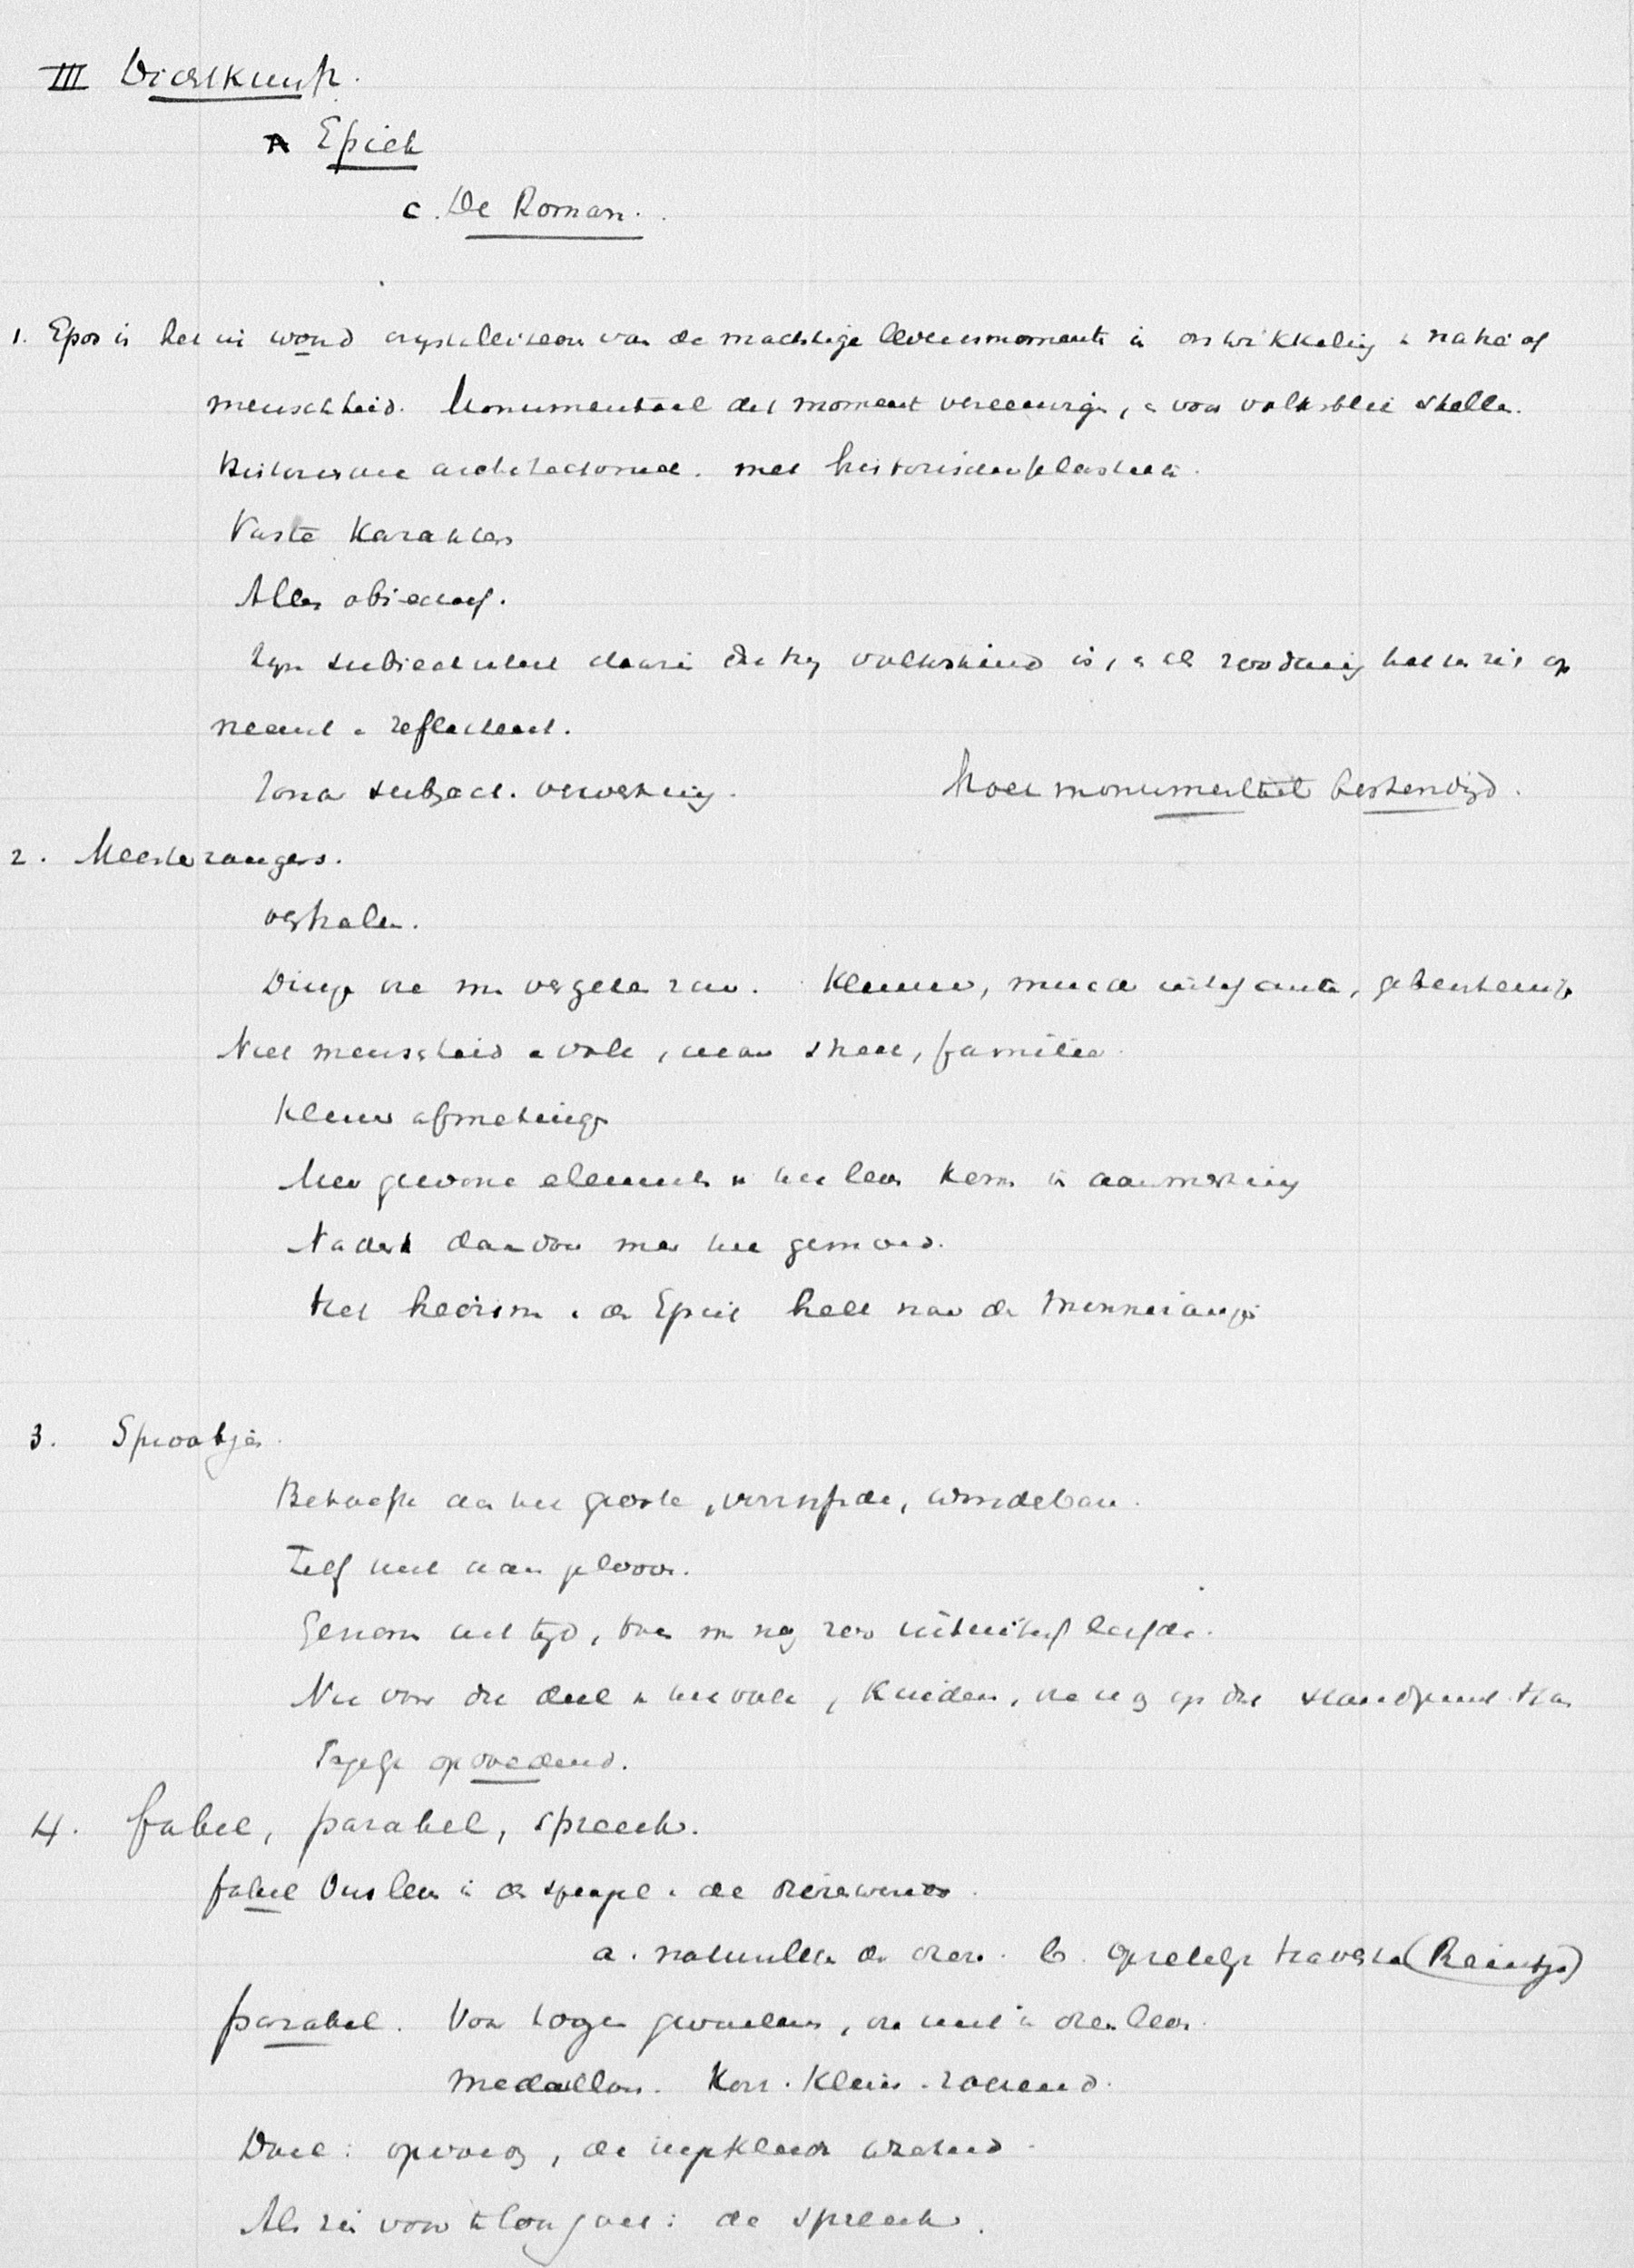 III Dichtkunst.
A Epiek
c. De Roman.
1. Epos is het in woord crystalliseeren van de machtige levensmomenten in ontwikkeling v natie of
menschheid. Monumentaal dat moment vereeuwigen, en voor volksblik stellen.
Historische architectoniek. met historische plastiek.
Vaste karakters
Alles objectief.
Zijn subjectiviteit daarin dat hij volkskind is, en als zoodanig het in zich op
neemt en reflecteert.
Zonder subject. verwerking. Moet monumenteel bestendigd.
2. Meesterzangers.
verhalen.
Dingen die men vergeten zou. Kleiner, minder interessante, gebeurtenissen
Niet menschheid en volk, maar stad, familie.
Kleiner afmetingen
Meer gewone elementen v het leven komen in aanmerking
Nadert daardoor meer het gemoed.
Het heroism. v de Epiek helt naar de Minnezangers
3. Sprookjes.
Behoefte aan het groote, verrassende, wonderbare.
Zelf niet aan geloven.
Genomen uit tijd, toen men nog zoo intuitief leefde.
Nu voor dat deel v het volk, kinderen, die nog op dat standpunt staan
Tegelijk opvoedend.
4. fabel, parabel, spreuk.
fabel Ons leven in de spiegel v de dierenwereld.
a. natuurleven der dieren. b. opzettelijk travestie (Reintje)
parabel. Voor hoger gevoelens, die niet in dierenleven.
Medaillon. Kort. Klein. roerend.
Doel: opvoeding, de ingekleede waarheid.
Als zij voor te lang gaat: de spreuk.